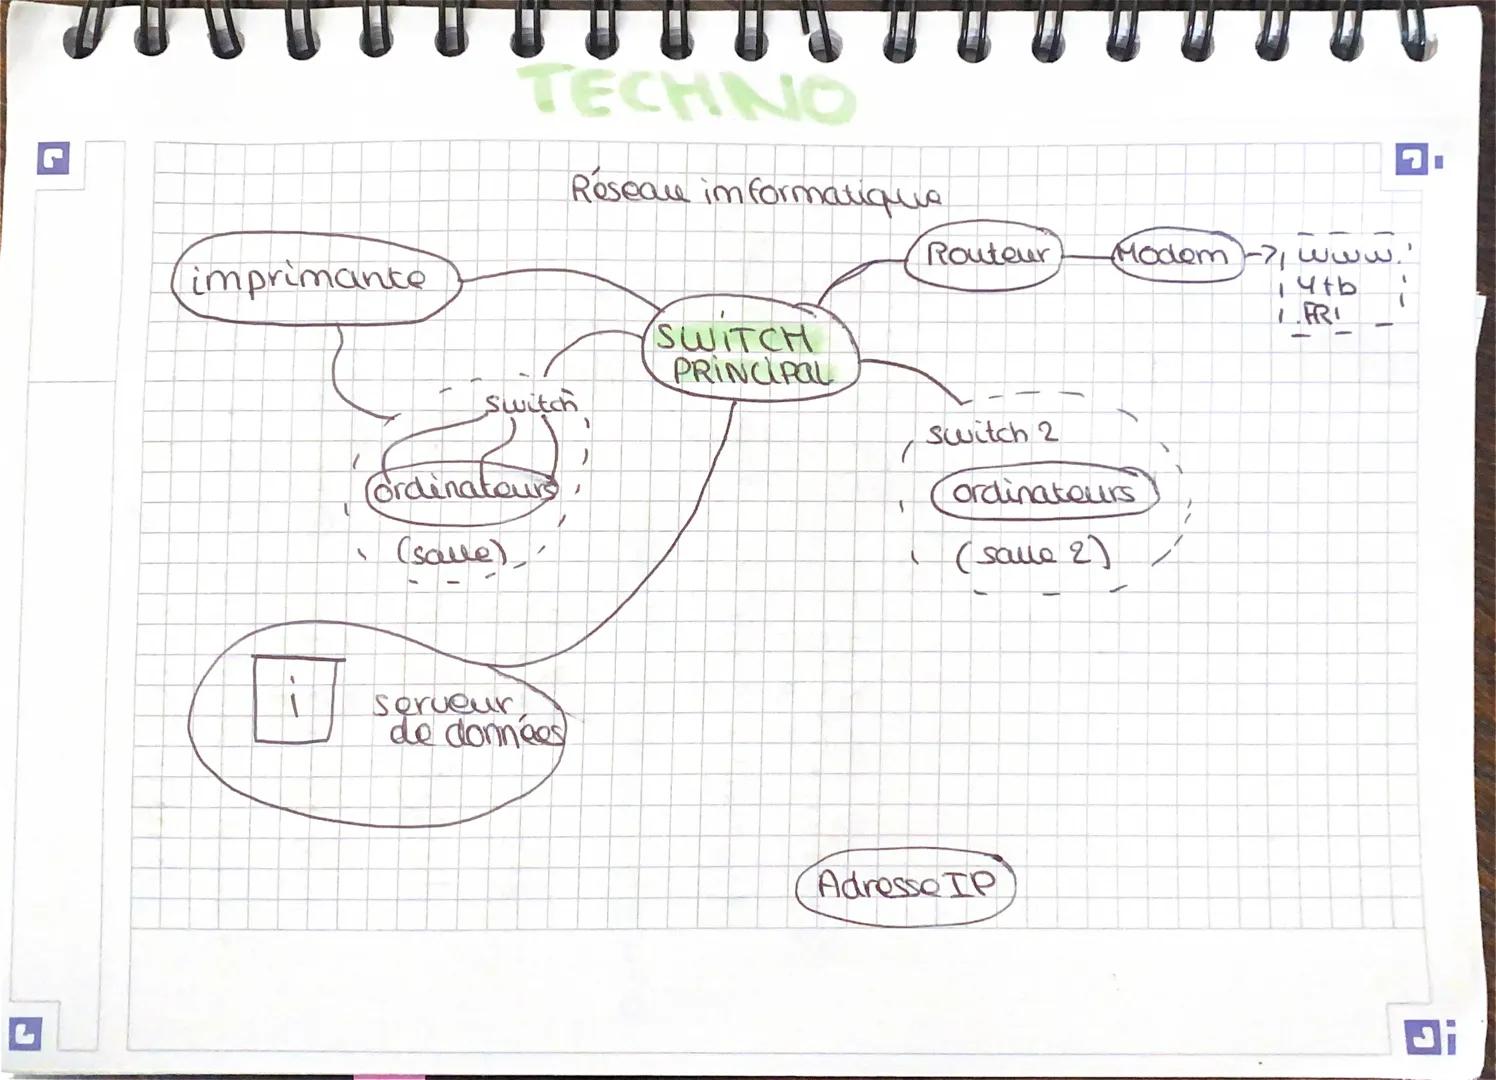 TECHNO
Réseau informatique
imprimante
Routeur
Modem
www.
ytb
.FR
SWITCH
PRINCIPAL
switch
ordinateurs
(salle)
switch 2
ordinateurs
(salle 2)
i
serveur
de données
Adresse IP